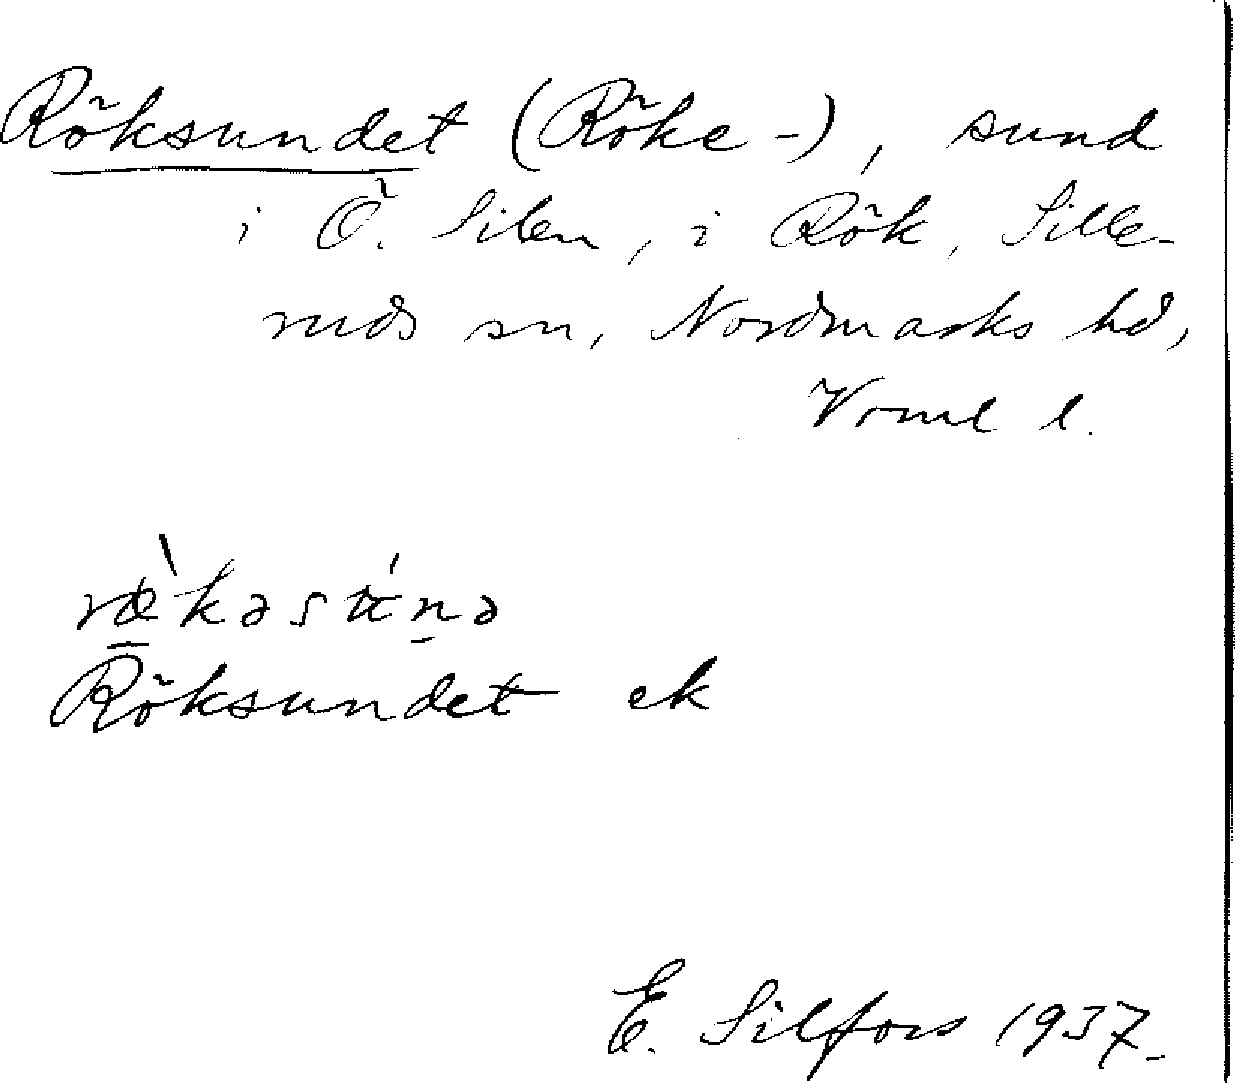 Röksundet (Röke-), sund
i Ö. Silen, i Rök, Sille-
ruds sn, Nordmarks hd,
Vrml l.
Röksundet ek
E. Silfors 1937.